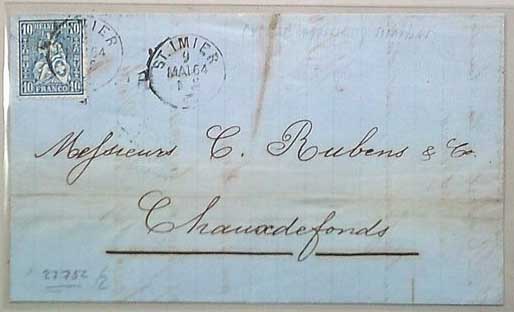 10 10
10 FRANCO 10
ST. IMIER
9
MAI 64
Messieurs C. Rubens & Co.
Chauxdefonds
27752